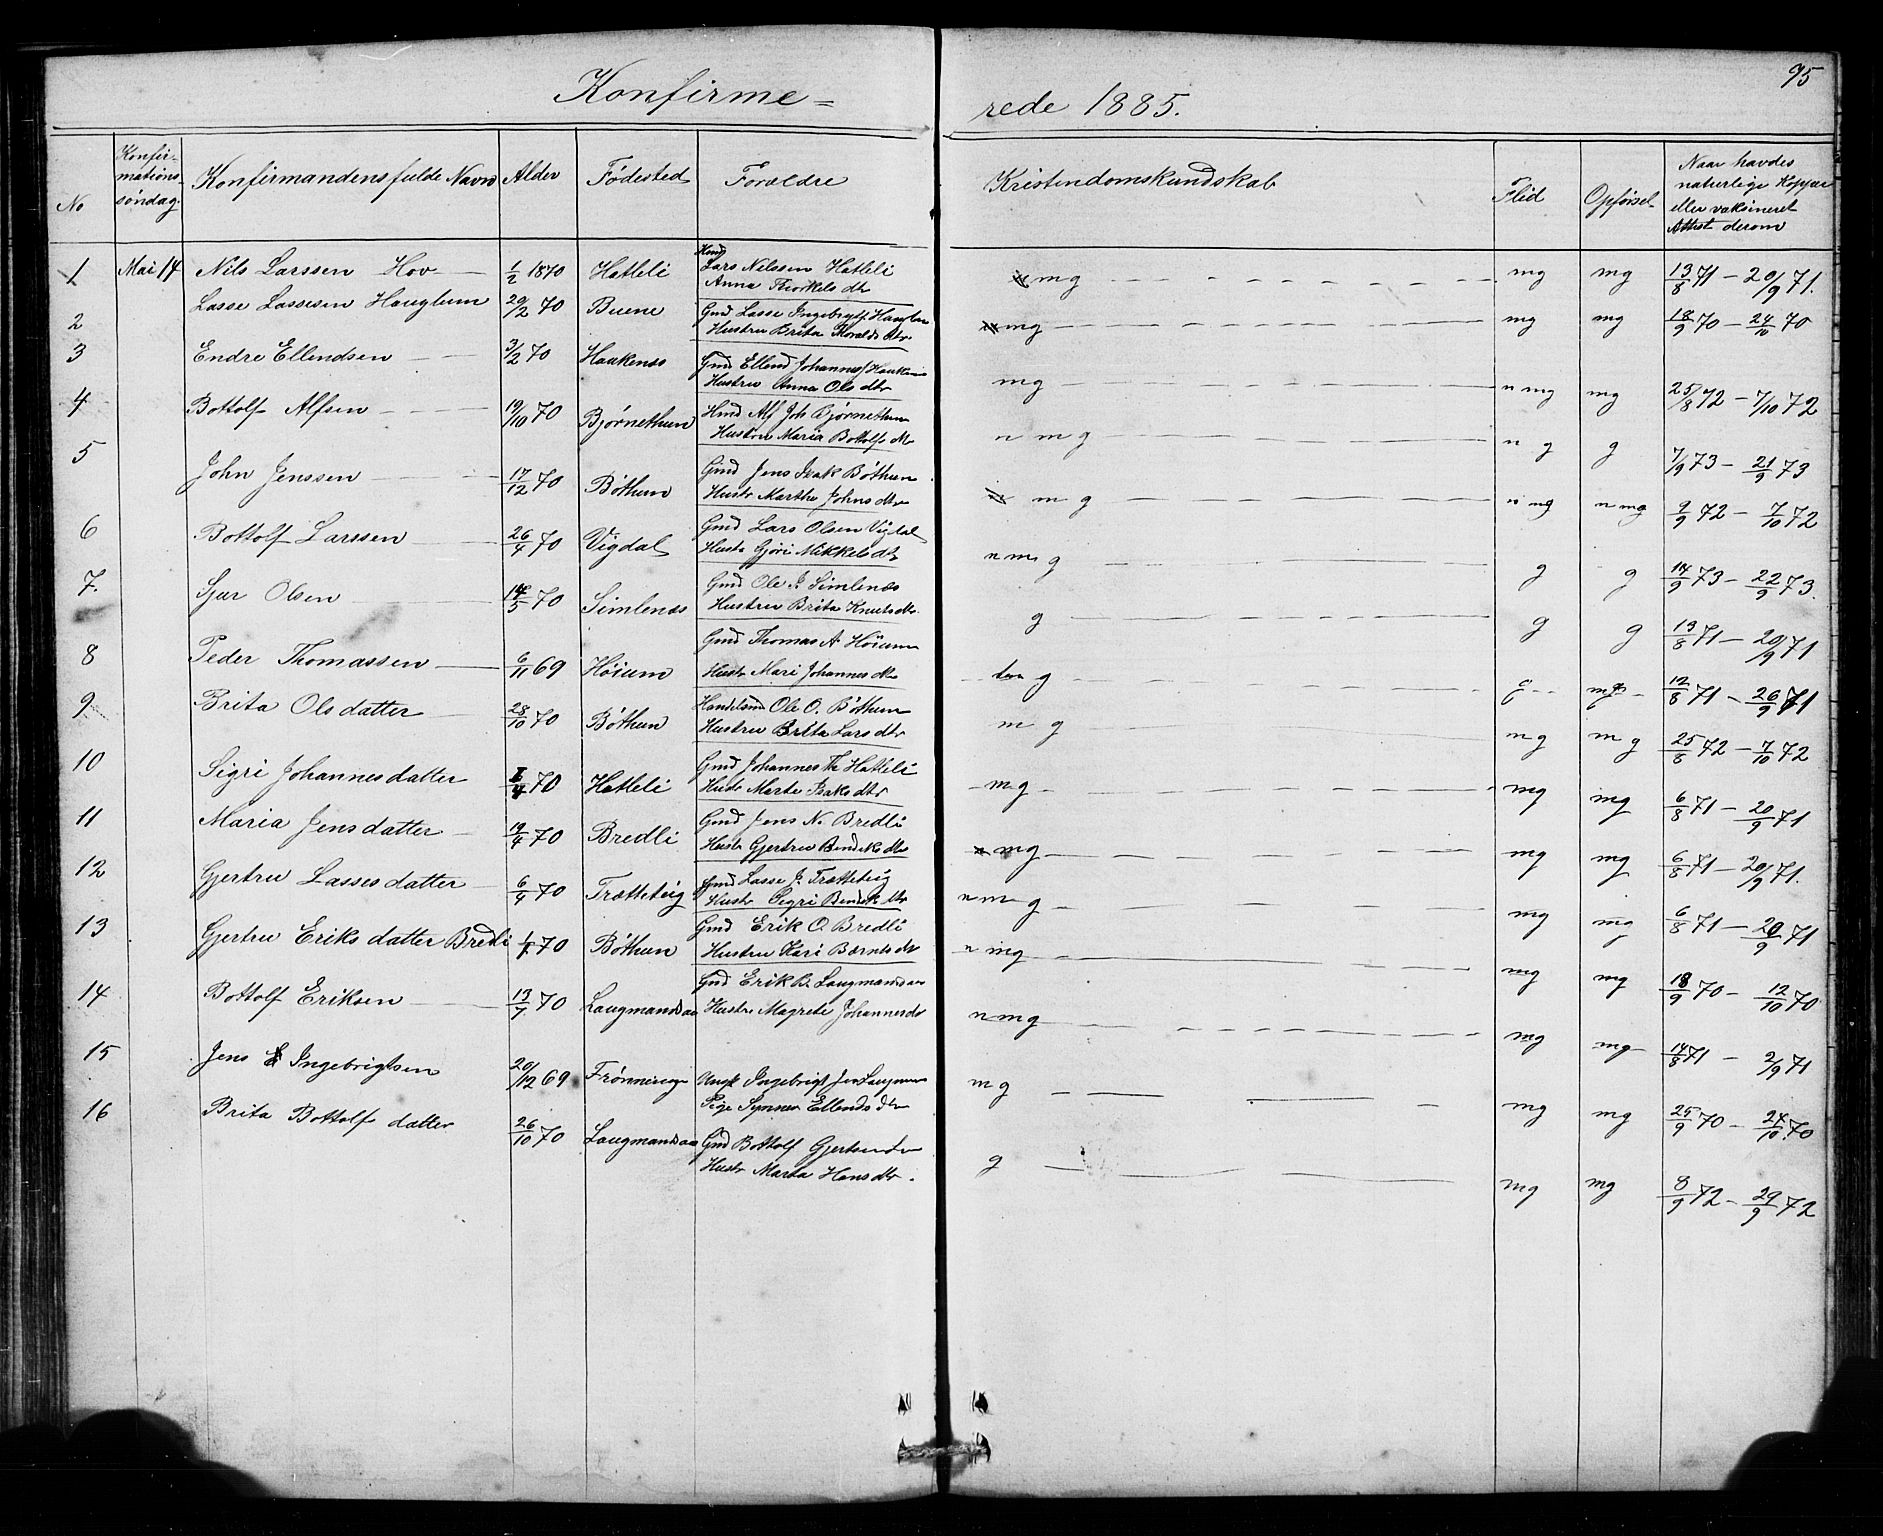 95
Konfirme= rede 1885.
No | Konfir-mations-søndag | Konfirmandens fulde Navn | Alder | Fødested | Forældre | Kristendomskundskab | Flid | Opførsel | Naar havdes naturlige Kopper eller vaksineret Attest derom
1 | Mai 14 | Nils Larssen Hov | 1/2 1870 | Hatleli | Hmd Lars Nilssen Hatleli
Anna Thorkelsdtr | mg | mg | mg | 13/8 71 - 20/9 71.
2 | Lasse Lassesen Hauglum | 20/2 70 | Buene | Gmd Lasse Ingebrigts
Hustru Brita dtr | mg | mg | mg | 18/9 70 - 24/10 70
3 | Endre Ellendsen | 3/2 70 | Haukenes | Gmd Ellend Johannes
Hustru Anna Ols dtr | mg | n mg | mg | 25/8 72 - 7/10 72
4 | Bottolf Alfsen | 19/10 70 | Bjørnethun | Hmd Alf Joh Bjørnethun
Hustru Maria Bottolfs | n m g | n g | g | 7/9 73 - 21/9 73
5 | John Jenssen | 17/12 70 | Bøthun | Gmd Jens Isak Bøthun
Hustr Martha Johns dtr | m g | n mg | n mg | 9/9 72 - 7/10 72
6 | Bottolf Larssen | 26/4 70 | Vigdal | Gmd Lars Olsen Vigdal
Hustr Gjøri Mikkels dtr | n m g | g | g | 14/9 73 - 22/9 73.
7. | Sjur Olsen | 14/5 70 | Simlenæs | Gmd Ole J. Simlenæs
Hustru Brita Knuts dtr | g | g | g | 13/8 71 - 20/9 71
8 | Peder Thomassen | 6/11 69 | Høium | Gmd Thomas A. Høium
Hustr Mari Johannes dtr | g | g | mg | 12/8 71 - 26/9 71
9 | Brita Olsdatter | 28/10 70 | Bøthun | Handelsmd Ole O. Bøthun
Hustru Brita Lars dtr | m g | n g | m g | 25/8 72 - 7/10 72
10 | Sigri Johannesdatter | 70 | Hatleli | Gmd Johannes Th Hatleli
Hustr Marta Isaks dtr | mg | mg | mg | 6/8 71 - 20/9 71
11 | Maria Jensdatter | 19/4 70 | Bredli | Gmd Jens N. Bredli
Hustr Gjertru Bendiks dtr | mg | mg | mg | 6/8 71 - 20/9 71.
12 | Gjertru Lassesdatter | 6/4 70 | Trætteteig | Gmd Lasse J. Trætteteig
Hustr Sigri Bendik dtr | n m g | mg | mg | 6/8 71 - 20/9 71
13 | Gjertru Eriksdatter Bredli | 70 | Bøthun | Gmd Erik O. Bredli
Hustru Kari Bærntsdtr | n mg | mg | mg | 18/9 70 - 12/10 70
14 | Bottolf Eriksen | 13/7 70 | Laugmandsaa | Gmd Erik B. Laugmandsaa
Hustr Magrete Johannesdr | n mg | mg | mg | 14/8 71 - 2/9 71
15 | Jens Ingebrigtsen | 20/12 69 | Frønningen | Ungk Ingebrigt Jen
Pige Synneva Ellends dtr | m g | mg | mg | 25/9 70 - 24/10 70
16 | Brita Bottolfsdatter | 26/10 70 | Laugmandsaa | Gmd Bottolf
Hustr Marta Hansdtr. | g | mg | mg | 8/9 72 - 29/9 72